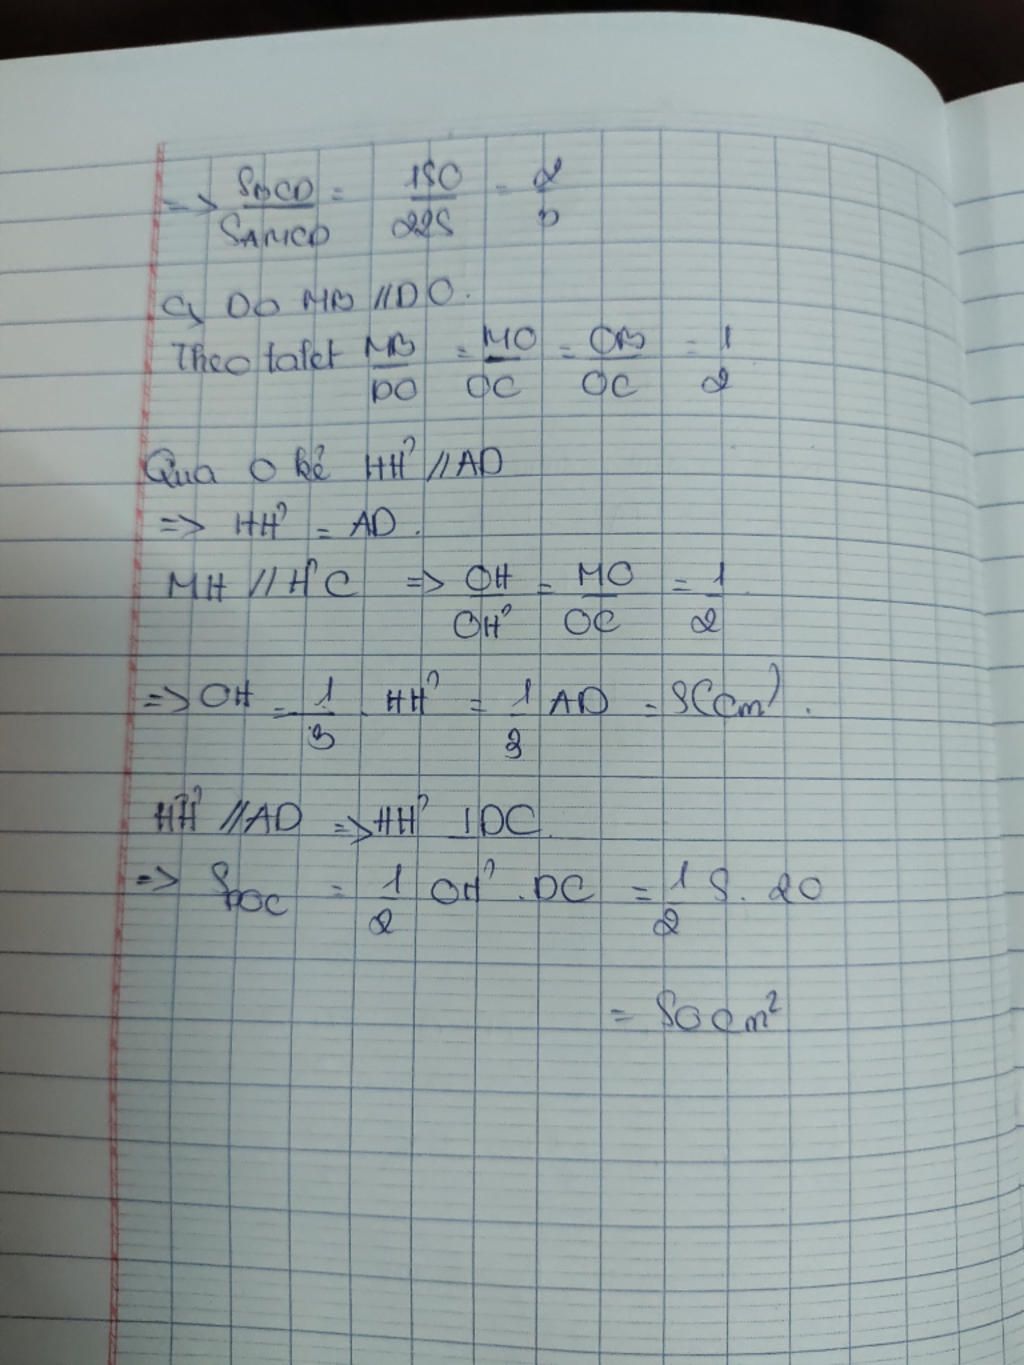 => SBCD / SAMCD = 150 / 225 = 2 / 3
c, Do MB // DC.
Theo talet MB / DC = MO / OC = OB / OC = 1 / 2
Qua O kẻ HH' // AD
=> HH' = AD.
MH // H'C => OH / OH' = MO / OC = 1 / 2
=> OH = 1 / 3 . HH' = 1 / 3 AD = 5(cm).
HH' // AD => HH' ⊥ DC.
=> SDOC = 1 / 2 OH' . DC = 1 / 2 5 . 20
= 50 cm²